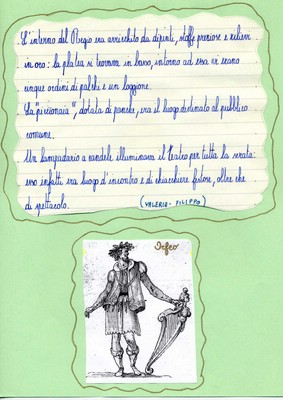 L'interno del Regio era arricchito da dipinti, stoffe preziose e rilievi
in oro: la platea si trovava in basso, intorno ad essa vi erano
cinque ordini di palchi e un loggione.
La "piccionaia", dotata di panche, era il luogo destinato al pubblico
comune.
Un lampadario a candele illuminava il Teatro per tutta la serata:
esso infatti era luogo d'incontro e di chiacchiere festose, oltre che
di spettacolo.
(VALERIO - FILIPPO)
Orfeo